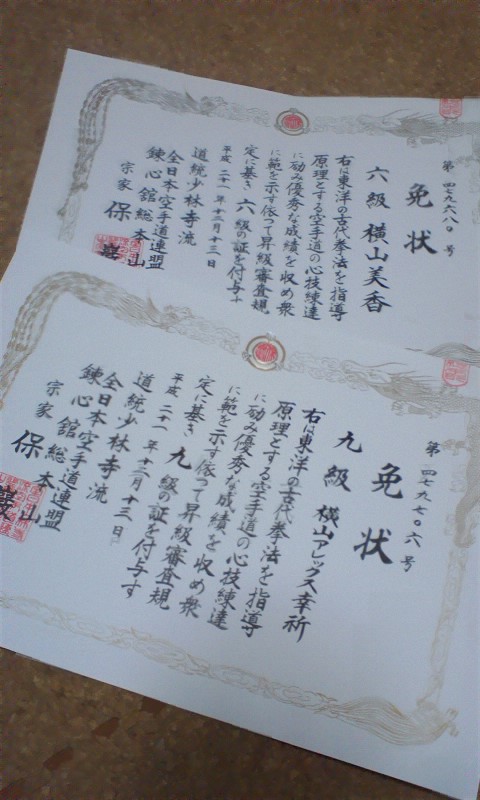 第四七九六八〇号
免状
六級 横山美香
右は東洋の古代拳法を指導
原理とする空手道の心技練達
に励み優秀な成績を収め衆
に範を示す依って昇級審査規
定に基き六級の証を付与す
平成二十一年十二月十三日
道統少林寺流
全日本空手道連盟
錬心館総本山
宗家 保 巖
第四七九七〇六号
免状
九級 横山アレックス幸祈
右は東洋の古代拳法を指導
原理とする空手道の心技練達
に励み優秀な成績を収め衆
に範を示す依って昇級審査規
定に基き九級の証を付与す
平成二十一年十二月十三日
道統少林寺流
全日本空手道連盟
錬心館総本山
宗家 保 巖